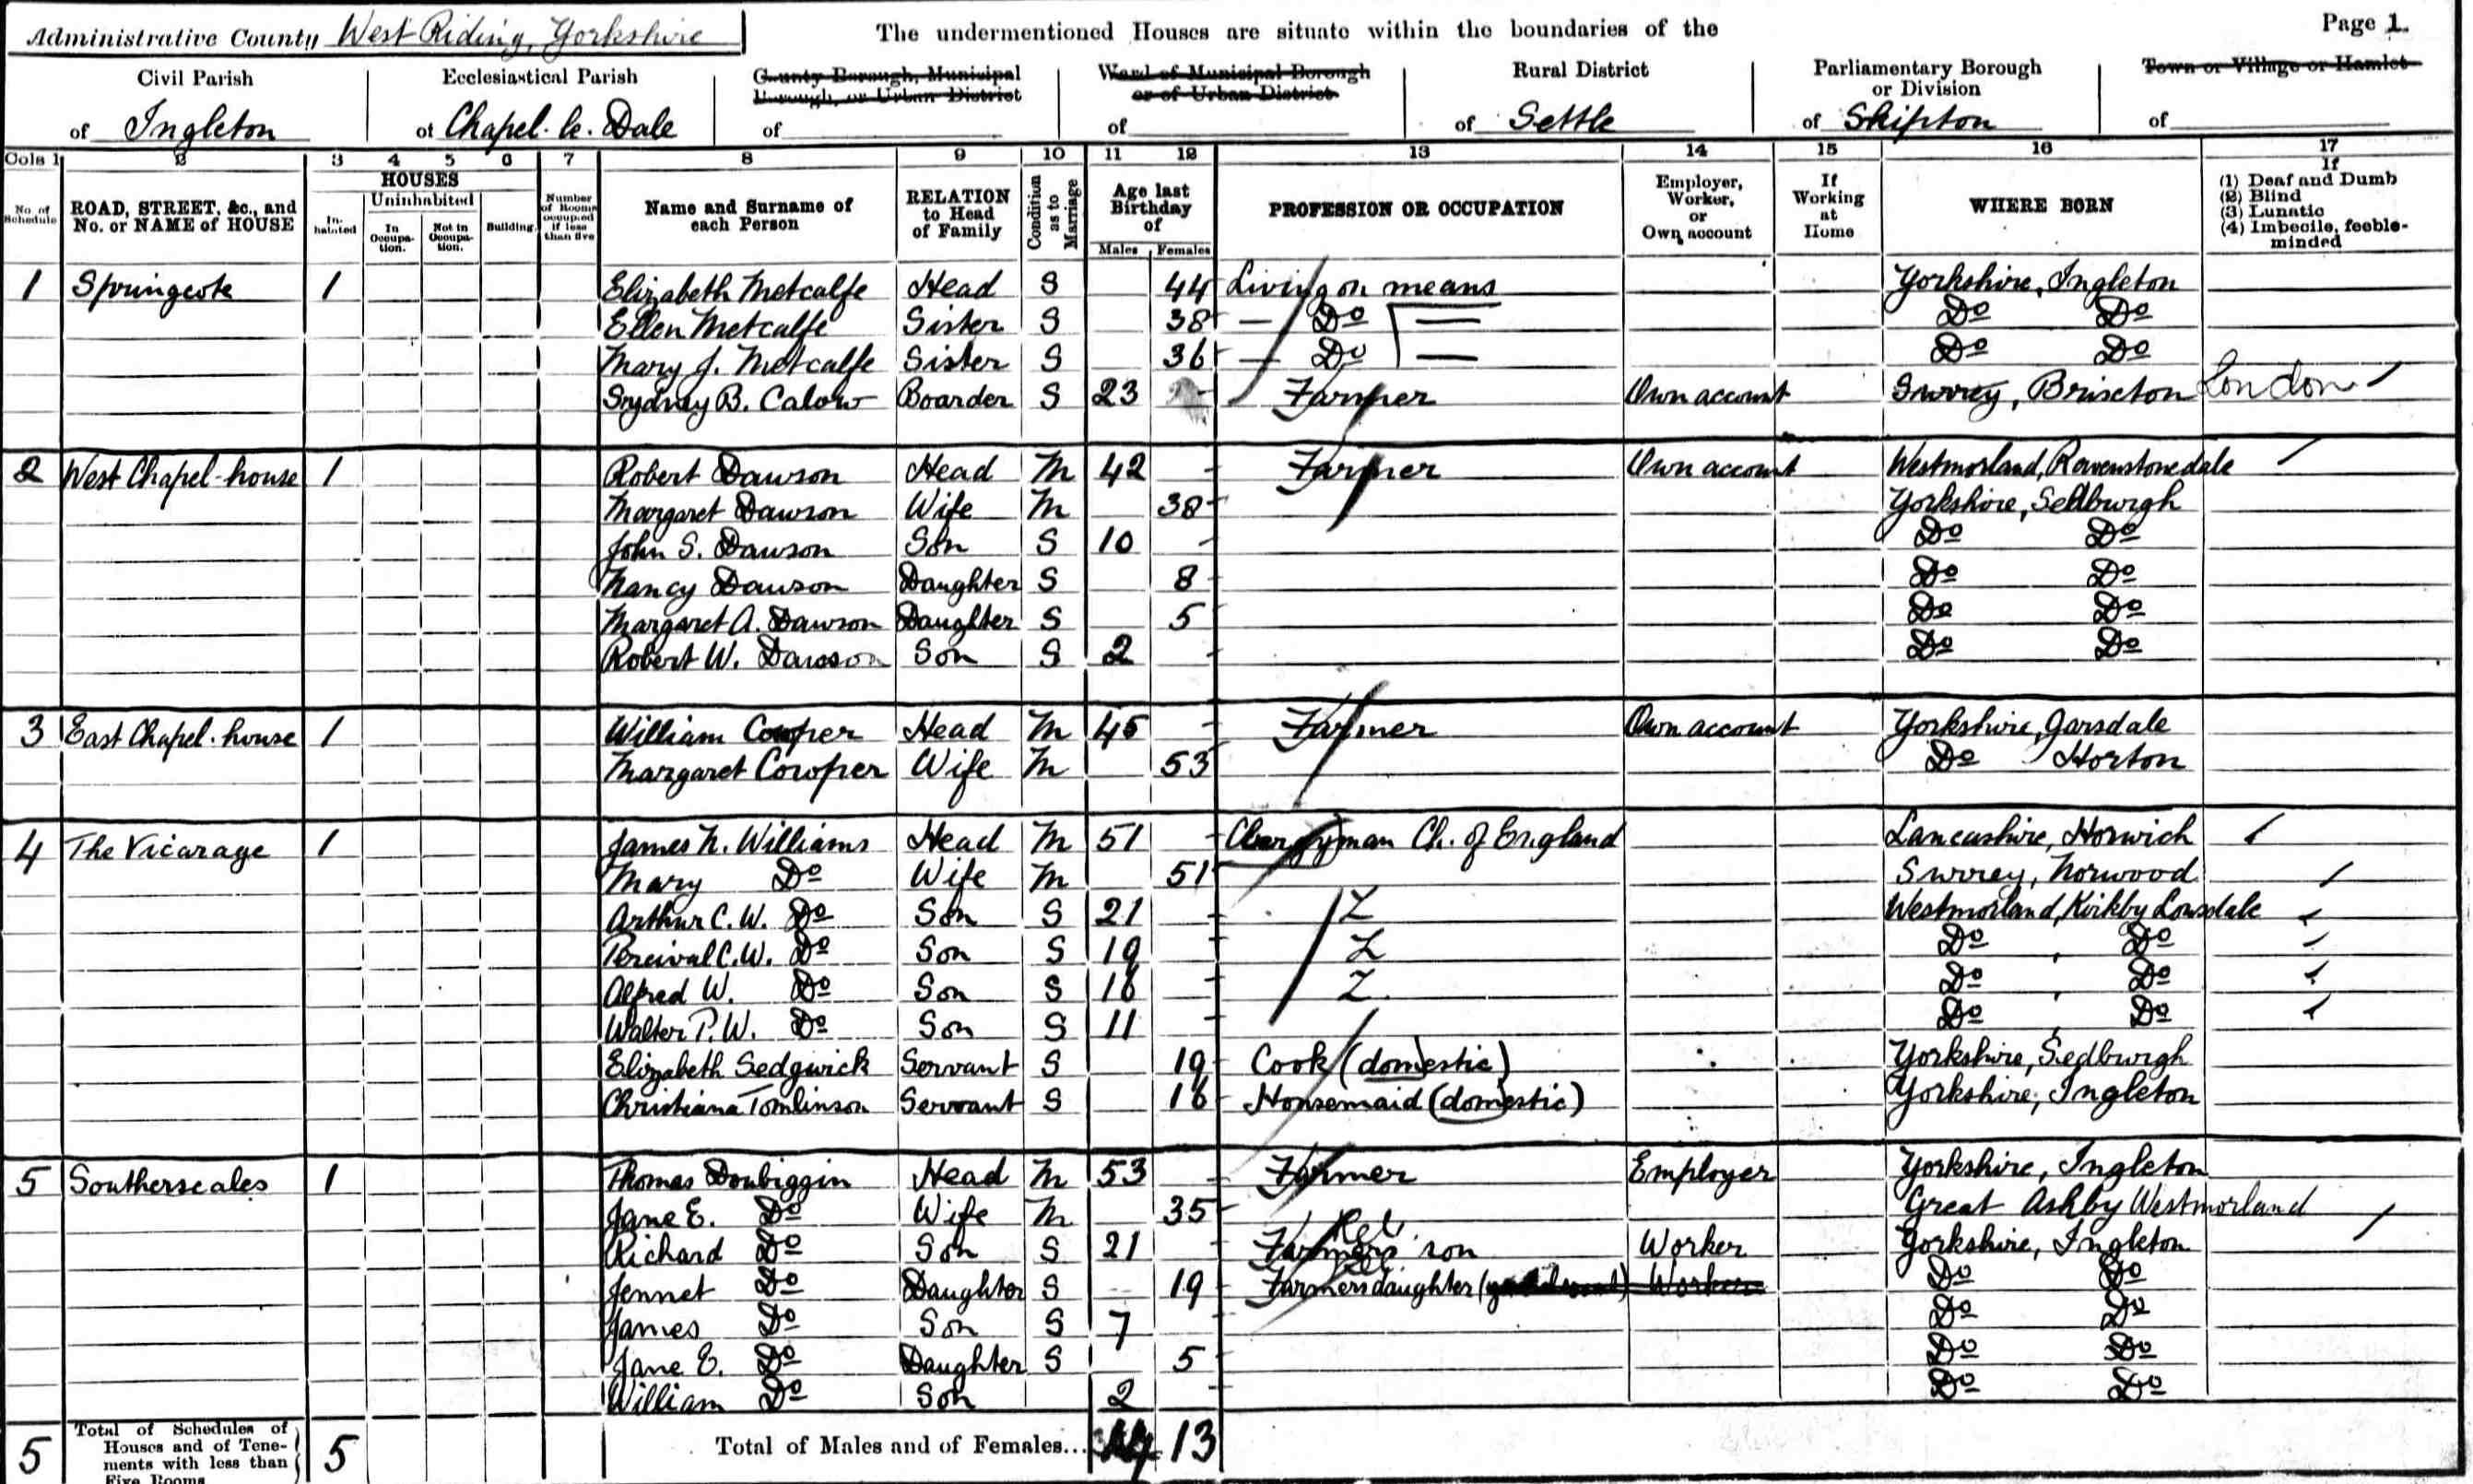 Administrative County West Riding, Yorkshire
The undermentioned Houses are situate within the boundaries of the
Page 1.
Civil Parish of Ingleton
Ecclesiastical Parish of Chapel. le. Dale
County Borough, Municipal Borough, or Urban District of
Ward of Municipal Borough or of Urban District of
Rural District of Settle
Parliamentary Borough or Division of Skipton
Town or Village or Hamlet of
Cols 1 2 3 4 5 6 7 8 9 10 11 12 13 14 15 16 17
No. of Schedule
ROAD, STREET, &c., and No. or NAME of HOUSE
HOUSES
Inhabited
Uninhabited
In Occupation.
Not in Occupation.
Building
Number of Rooms occupied if less than five
Name and Surname of each Person
RELATION to Head of Family
Condition as to Marriage
Age last Birthday of
Males Females
PROFESSION OR OCCUPATION
Employer, Worker, or Own account
If Working at Home
WHERE BORN
If
(1) Deaf and Dumb
(2) Blind
(3) Lunatic
(4) Imbecile, feeble-minded
1 Springcote 1 Elizabeth Metcalfe Head S 44 Living on means Yorkshire, Ingleton
Ellen Metcalfe Sister S 38 — Do — Do Do
Mary J. Metcalfe Sister S 36 — Do — Do Do
Sydney B. Calow Boarder S 23 Farmer Own account Surrey, Brixton London
2 West Chapel-house 1 Robert Dawson Head M 42 - Farmer Own account Westmorland, Ravenstonedale
Margaret Dawson Wife M 38 Yorkshire, Sedburgh
John S. Dawson Son S 10 - Do Do
Nancy Dawson Daughter S 8 Do Do
Margaret A. Dawson Daughter S 5 Do Do
Robert W. Dawson Son S 2 - Do Do
3 East Chapel-house 1 William Cowper Head M 45 - Farmer Own account Yorkshire, Garsdale
Margaret Cowper Wife M 53 Do Horton
4 The Vicarage 1 James N. Williams Head M 51 - Clergyman Ch. of England Lancashire, Horwich
Mary Do Wife M 51 Surrey, Norwood
Arthur C. W. Do Son S 21 - Westmorland, Kirkby Lonsdale
Percival C. W. Do Son S 19 - Do Do
Alfred W. Do Son S 16 - Do Do
Walter P. W. Do Son S 11 - Do Do
Elizabeth Sedgwick Servant S 19 Cook (domestic) Yorkshire, Sedburgh
Christiana Tomlinson Servant S 16 Housemaid (domestic) Yorkshire, Ingleton
5 Southerscales 1 Thomas Doubiggin Head M 53 - Farmer Employer Yorkshire, Ingleton
Jane E. Do Wife M 35 Great Ashby Westmorland
Richard Do Son S 21 - Farmers son Worker Yorkshire, Ingleton
Jennet Do Daughter S 19 Farmers daughter Worker Do Do
James Do Son S 7 Do Do
Jane E. Do Daughter S 5 Do Do
William Do Son 2 Do Do
5 Total of Schedules of Houses and of Tenements with less than Five Rooms 5 Total of Males and of Females... 14 13